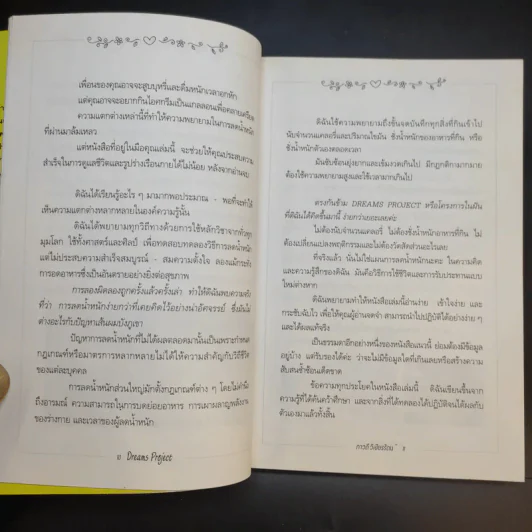 เพื่อนของคุณอาจจะสูบบุหรี่และดื่มหนักเวลาอกหัก
แต่คุณอาจจะอยากกินไอศกรีมเป็นแกลลอนเพื่อคลายเครียด
ความแตกต่างเหล่านี้ที่ทำให้ความพยายามในการลดน้ำหนัก
ที่ผ่านมาล้มเหลว
แต่หนังสือที่อยู่ในมือคุณเล่มนี้ จะช่วยให้คุณประสบความ
สำเร็จในการดูแลชีวิตและรูปร่างเรือนกายได้ไม่น้อย หลังจากอ่านจบ
ดิฉันได้เรียนรู้อะไร ๆ มามากพอประมาณ - พอที่จะทำให้
เห็นความแตกต่างหลากหลายในองค์ความรู้นั้น
ดิฉันได้พยายามทุกวิถีทางด้วยการใช้หลักวิชาจากทั่วทุก
มุมโลก ใช้ทั้งศาสตร์และศิลป์ เพื่อทดสอบทดลองวิธีการลดน้ำหนัก
แต่ไม่ประสบความสำเร็จสมบูรณ์ - สมความตั้งใจ ลองแม้กระทั่ง
การอดอาหารซึ่งเป็นอันตรายอย่างยิ่งต่อสุขภาพ
การลองผิดลองถูกครั้งแล้วครั้งเล่า ทำให้ดิฉันพบความจริง
ที่ว่า การลดน้ำหนักง่ายกว่าที่เคยคิดไว้อย่างน่าอัศจรรย์ ซึ่งมันไม่
ต่างอะไรกับปัญหาเส้นผมบังภูเขา
ปัญหาการลดน้ำหนักที่ไม่ได้ผลตลอดมานั้นเป็นเพราะกำหนด
กฎเกณฑ์หรือมาตรการหลากหลายไม่ได้ให้ความสำคัญกับวิถีชีวิต
ของแต่ละบุคคล
การลดน้ำหนักส่วนใหญ่มักตั้งกฎเกณฑ์ต่าง ๆ โดยไม่คำนึง
ถึงอารมณ์ ความสามารถในการบดย่อยอาหาร การเผาผลาญพลังงาน
ของร่างกาย และเวลาของผู้ลดน้ำหนัก
Dreams Project
ดิฉันใช้ความพยายามถึงขั้นจดบันทึกทุกสิ่งที่กินเข้าไป
นับจำนวนแคลอรี่และปริมาณไขมัน ชั่งน้ำหนักของอาหารที่กิน หรือ
ชั่งน้ำหนักตัวเองตลอดเวลา
มันซับซ้อนยุ่งยากและเข้มงวดเกินไป มีกฎกติกามากมาย
ต้องใช้ความพยายามสูงและใช้เวลามากเกินไป
ตรงกันข้าม DREAMS PROJECT หรือโครงการในฝัน
ที่ดิฉันได้คิดขึ้นมานี้ ง่ายกว่าเยอะเลยค่ะ
ไม่ต้องนับจำนวนแคลอรี่ ไม่ต้องชั่งน้ำหนักอาหารที่กิน ไม่
ต้องเปลี่ยนแปลงพฤติกรรมและไม่ต้องวัดสัดส่วนอะไรเลย
ที่จริงแล้ว นั่นไม่ใช่แผนการลดน้ำหนักนะคะ ในความคิด
และความรู้สึกของดิฉัน มันคือวิธีการใช้ชีวิตและการรับประทานแบบ
ใหม่ต่างหาก
ดิฉันพยายามทำให้หนังสือเล่มนี้อ่านง่าย เข้าใจง่าย และ
กระชับฉับไว เพื่อให้คุณผู้อ่านจดจำ สามารถนำไปปฏิบัติได้อย่างง่าย ๆ
และได้ผลแท้จริง
เป็นธรรมดาอีกอย่างหนึ่งของหนังสือแนวนี้ ย่อมต้องมีข้อมูล
อยู่บ้าง แต่รับรองได้ค่ะ ว่าจะไม่มีข้อมูลใดที่เกินเลยหรือสร้างความ
สับสนซ้ำซ้อนเด็ดขาด
ข้อความทุกประโยคในหนังสือเล่มนี้ ดิฉันเขียนขึ้นจาก
ความรู้ที่ได้ค้นคว้าศึกษา และจากสิ่งที่ได้ทดลองได้ปฏิบัติจนได้ผลกับ
ตัวเองมาแล้วทั้งสิ้น